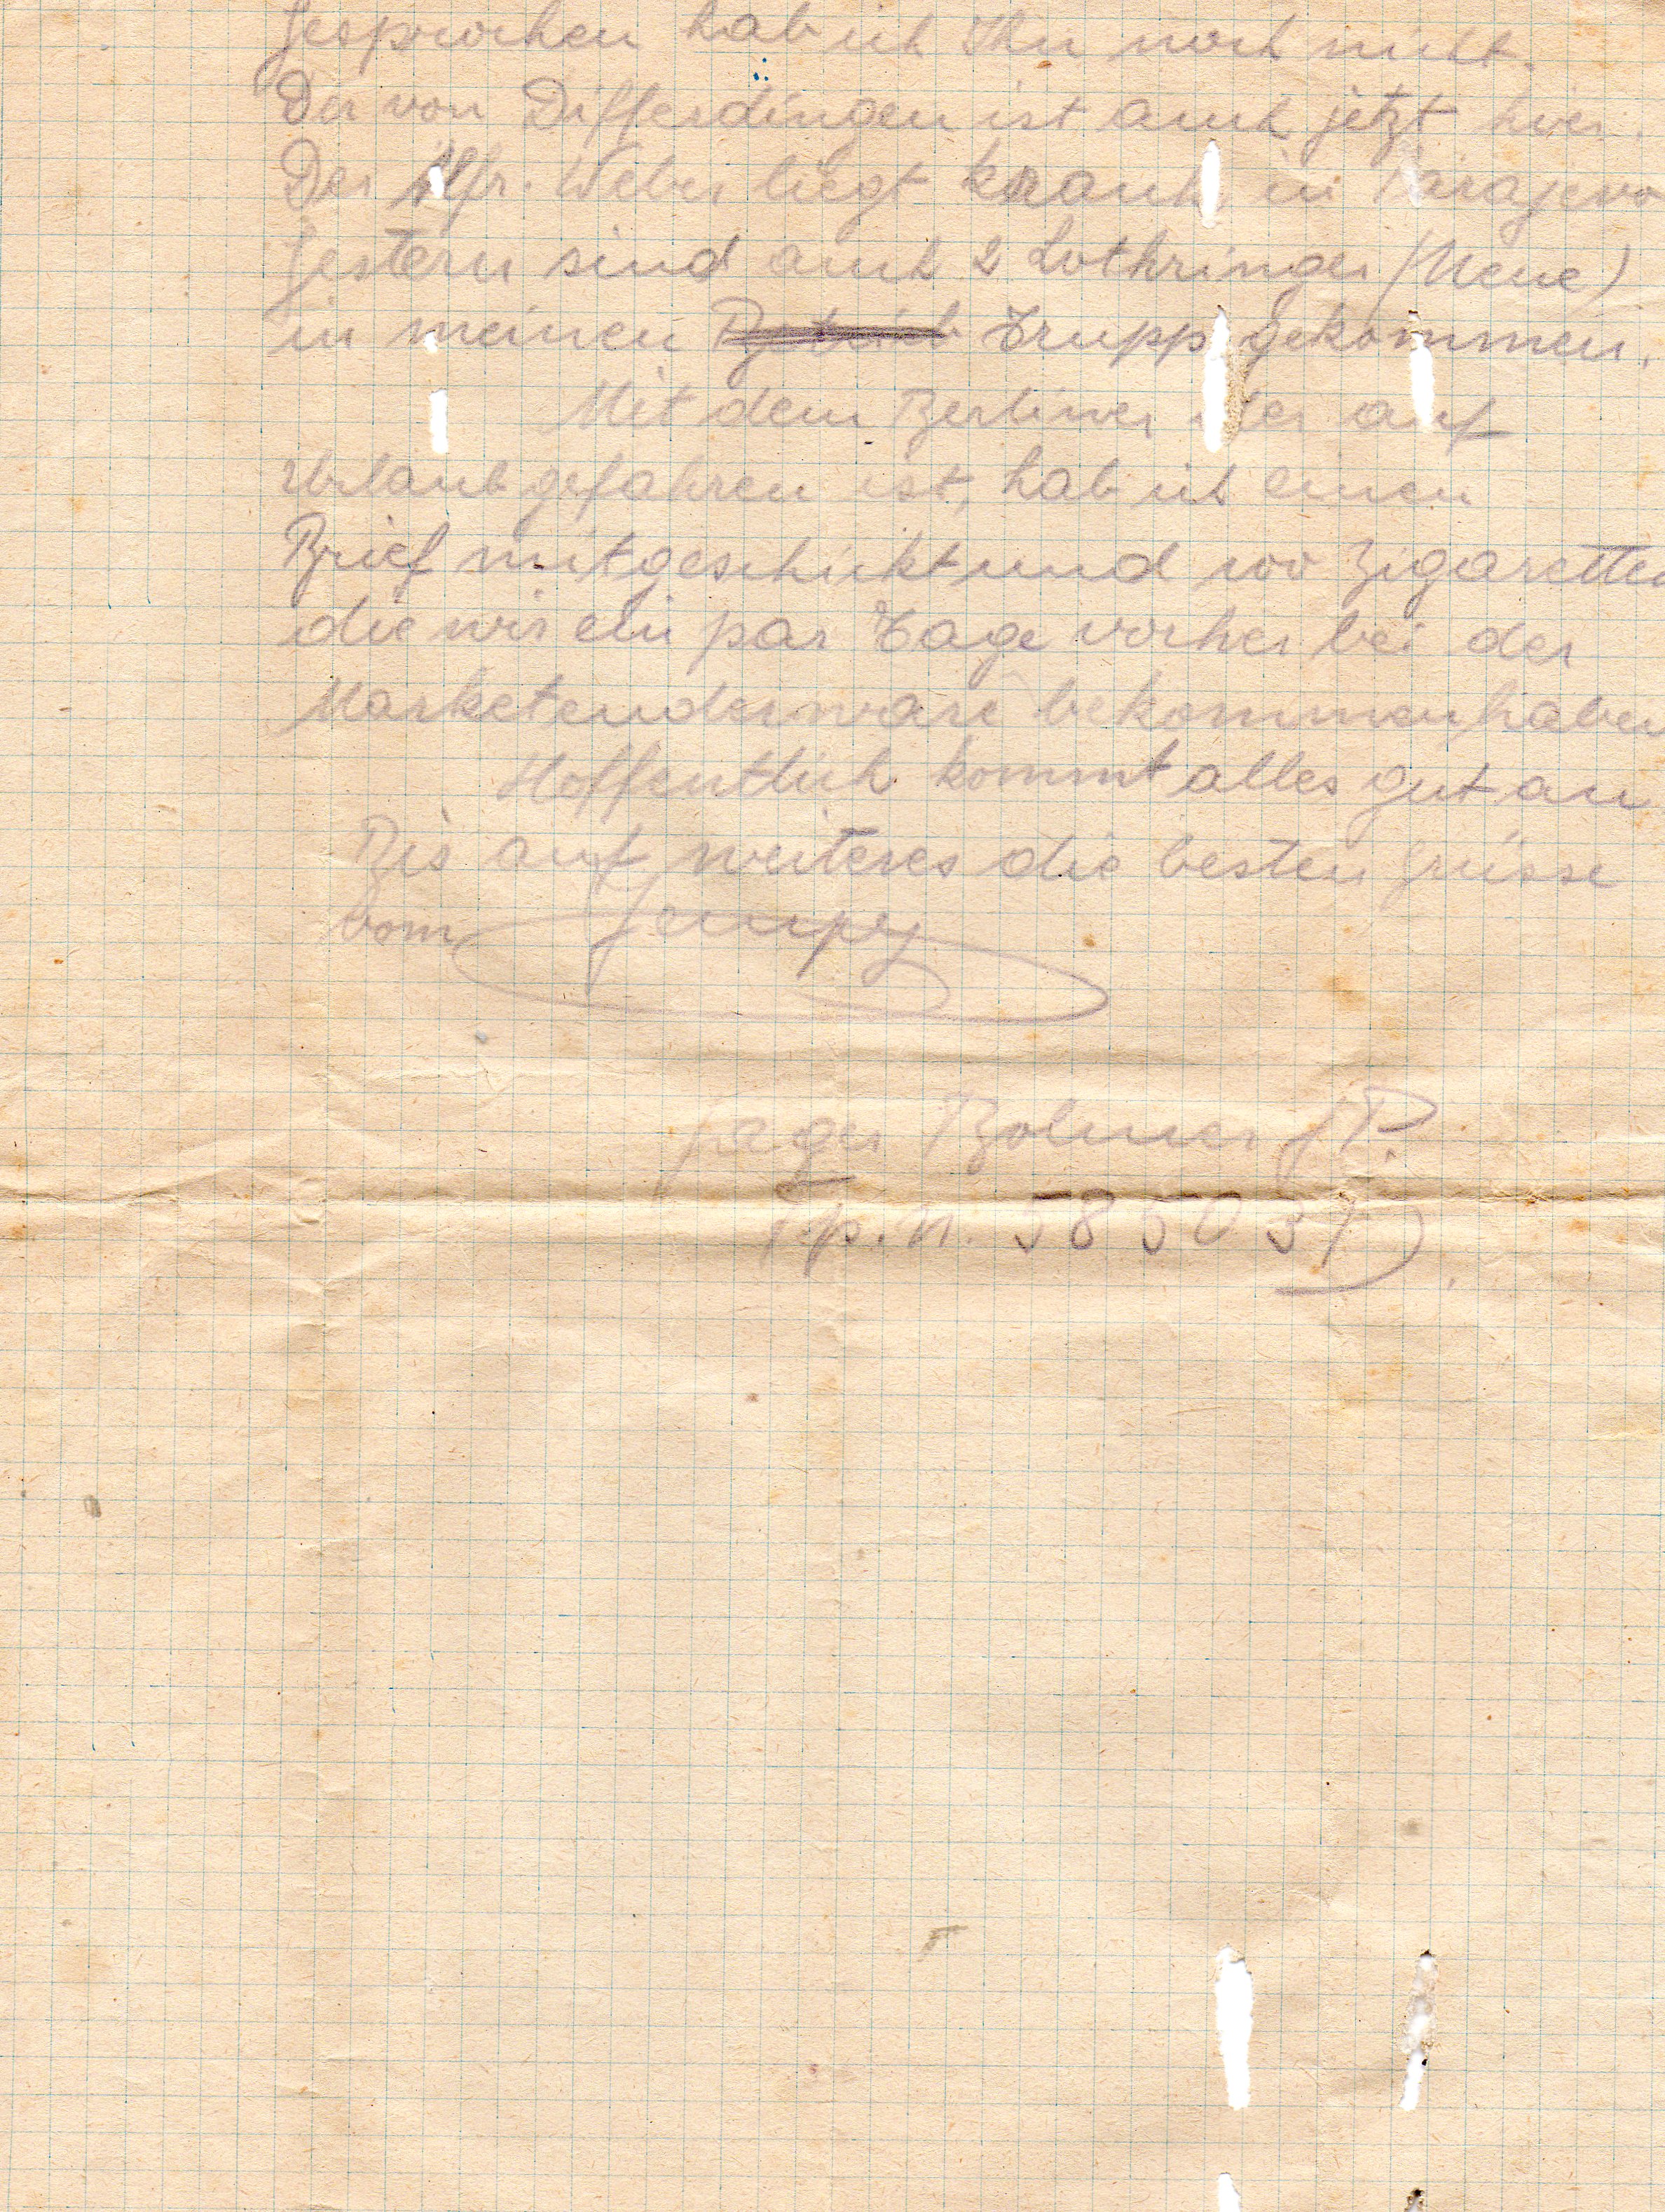 Gesprochen hab ich Ihn noch nicht.
Der von Differdingen ist auch jetzt hier.
Der Alfr. Weber liegt krank in Sarajevo
Gestern sind auch 2 Lothringer (Neue)
in meinen Trupp gekommen.
Mit dem Berliner der auf
Urlaub gefahren ist, hab ich einen
Brief mitgeschickt und 100 Zigaretten
die wir ein par Tage vorher bei der
Marketenderware bekommen haben
Hoffentlich kommt alles gut an
Bis auf weiteres die besten Grüsse
vom Jempy
Jäger Bolmer J P.
F.p.N. 58503 D.